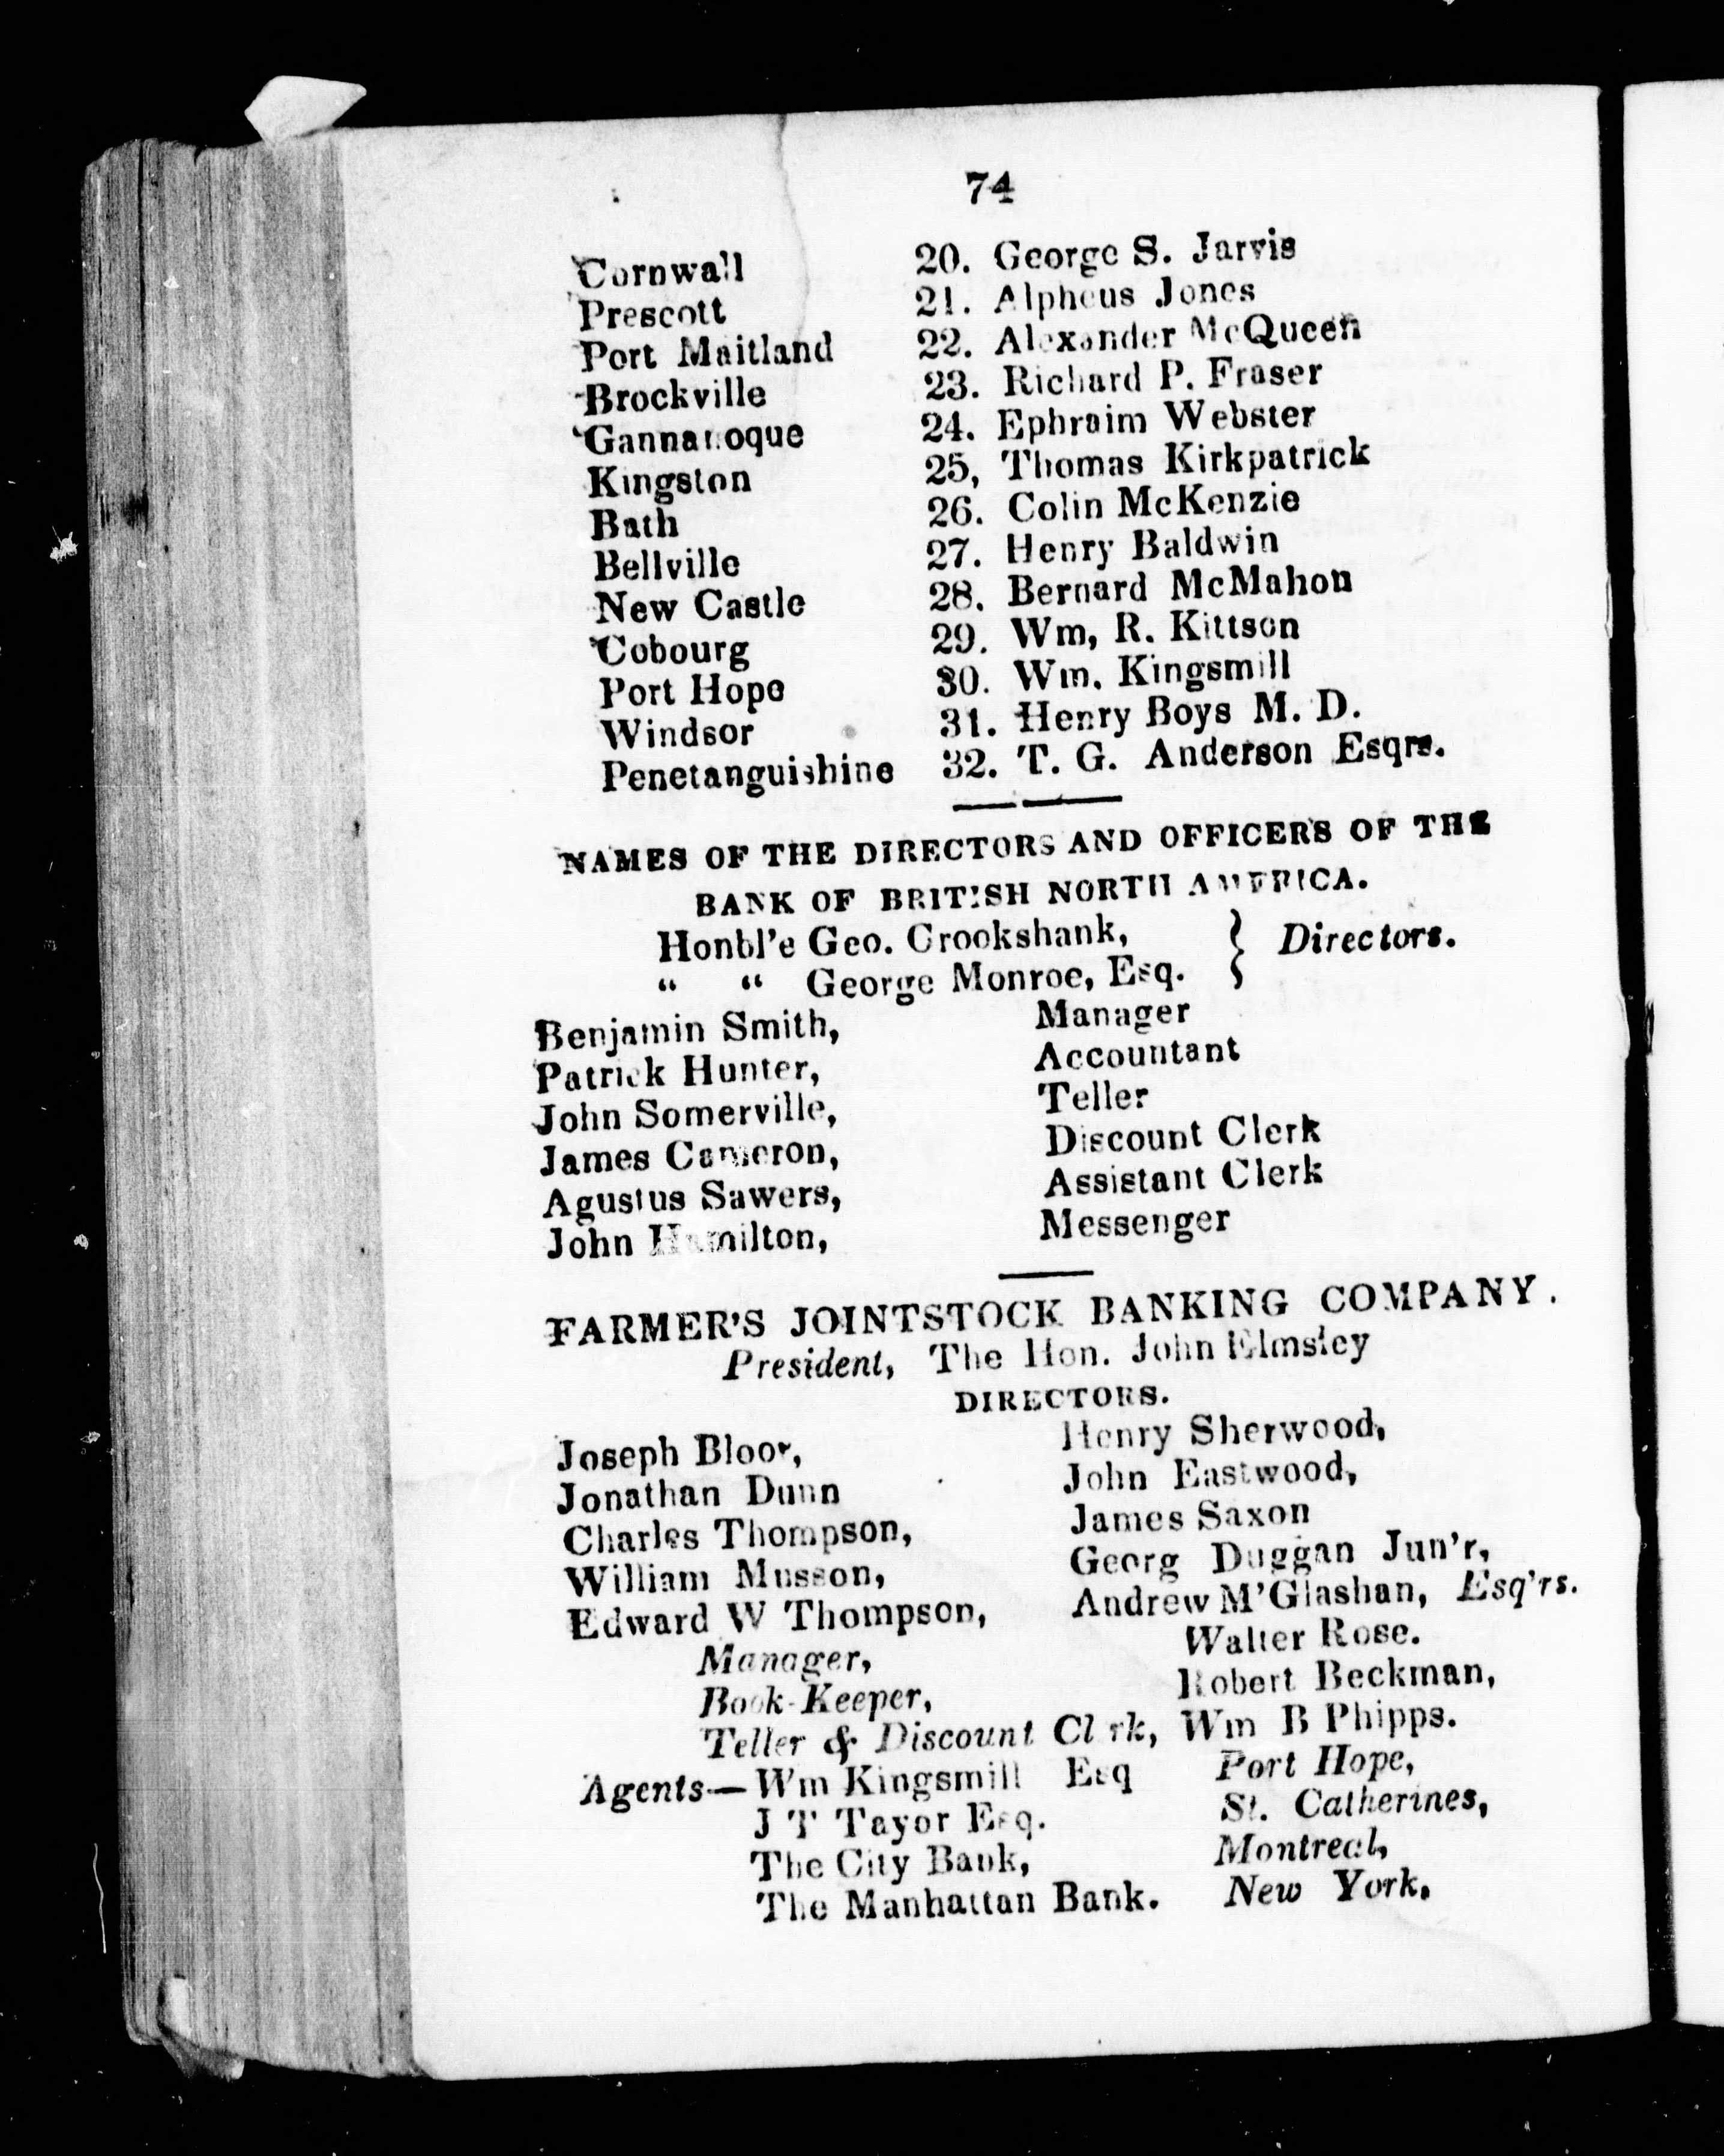 74
Cornwall 20. George S. Jarvis
Prescott 21. Alpheus Jones
Port Maitland 22. Alexander McQueen
Brockville 23. Richard P. Fraser
Gannanoque 24. Ephraim Webster
Kingston 25, Thomas Kirkpatrick
Bath 26. Colin McKenzie
Bellville 27. Henry Baldwin
New Castle 28. Bernard McMahon
Cobourg 29. Wm, R. Kittson
Port Hope 30. Wm. Kingsmill
Windsor 31. Henry Boys M. D.
Penetanguishine 32. T. G. Anderson Esqrs.
NAMES OF THE DIRECTORS AND OFFICERS OF THE
BANK OF BRITISH NORTH AMERICA.
Honbl'e Geo. Crookshank, } Directors.
“ “ George Monroe, Esq.
Benjamin Smith, Manager
Patrick Hunter, Accountant
John Somerville, Teller
James Cameron, Discount Clerk
Agustus Sawers, Assistant Clerk
John Hamilton, Messenger
FARMER'S JOINTSTOCK BANKING COMPANY.
President, The Hon. John Elmsley
DIRECTORS.
Joseph Bloor, Henry Sherwood,
Jonathan Dunn John Eastwood,
Charles Thompson, James Saxon
William Musson, Georg Duggan Jun'r,
Edward W Thompson, Andrew M'Glashan, Esq'rs.
Manager, Walter Rose.
Book-Keeper, Robert Beckman,
Teller & Discount Cl rk, Wm B Phipps.
Agents—Wm Kingsmill Esq Port Hope,
J T Tayor Esq. St. Catherines,
The City Bank, Montreal,
The Manhattan Bank. New York.